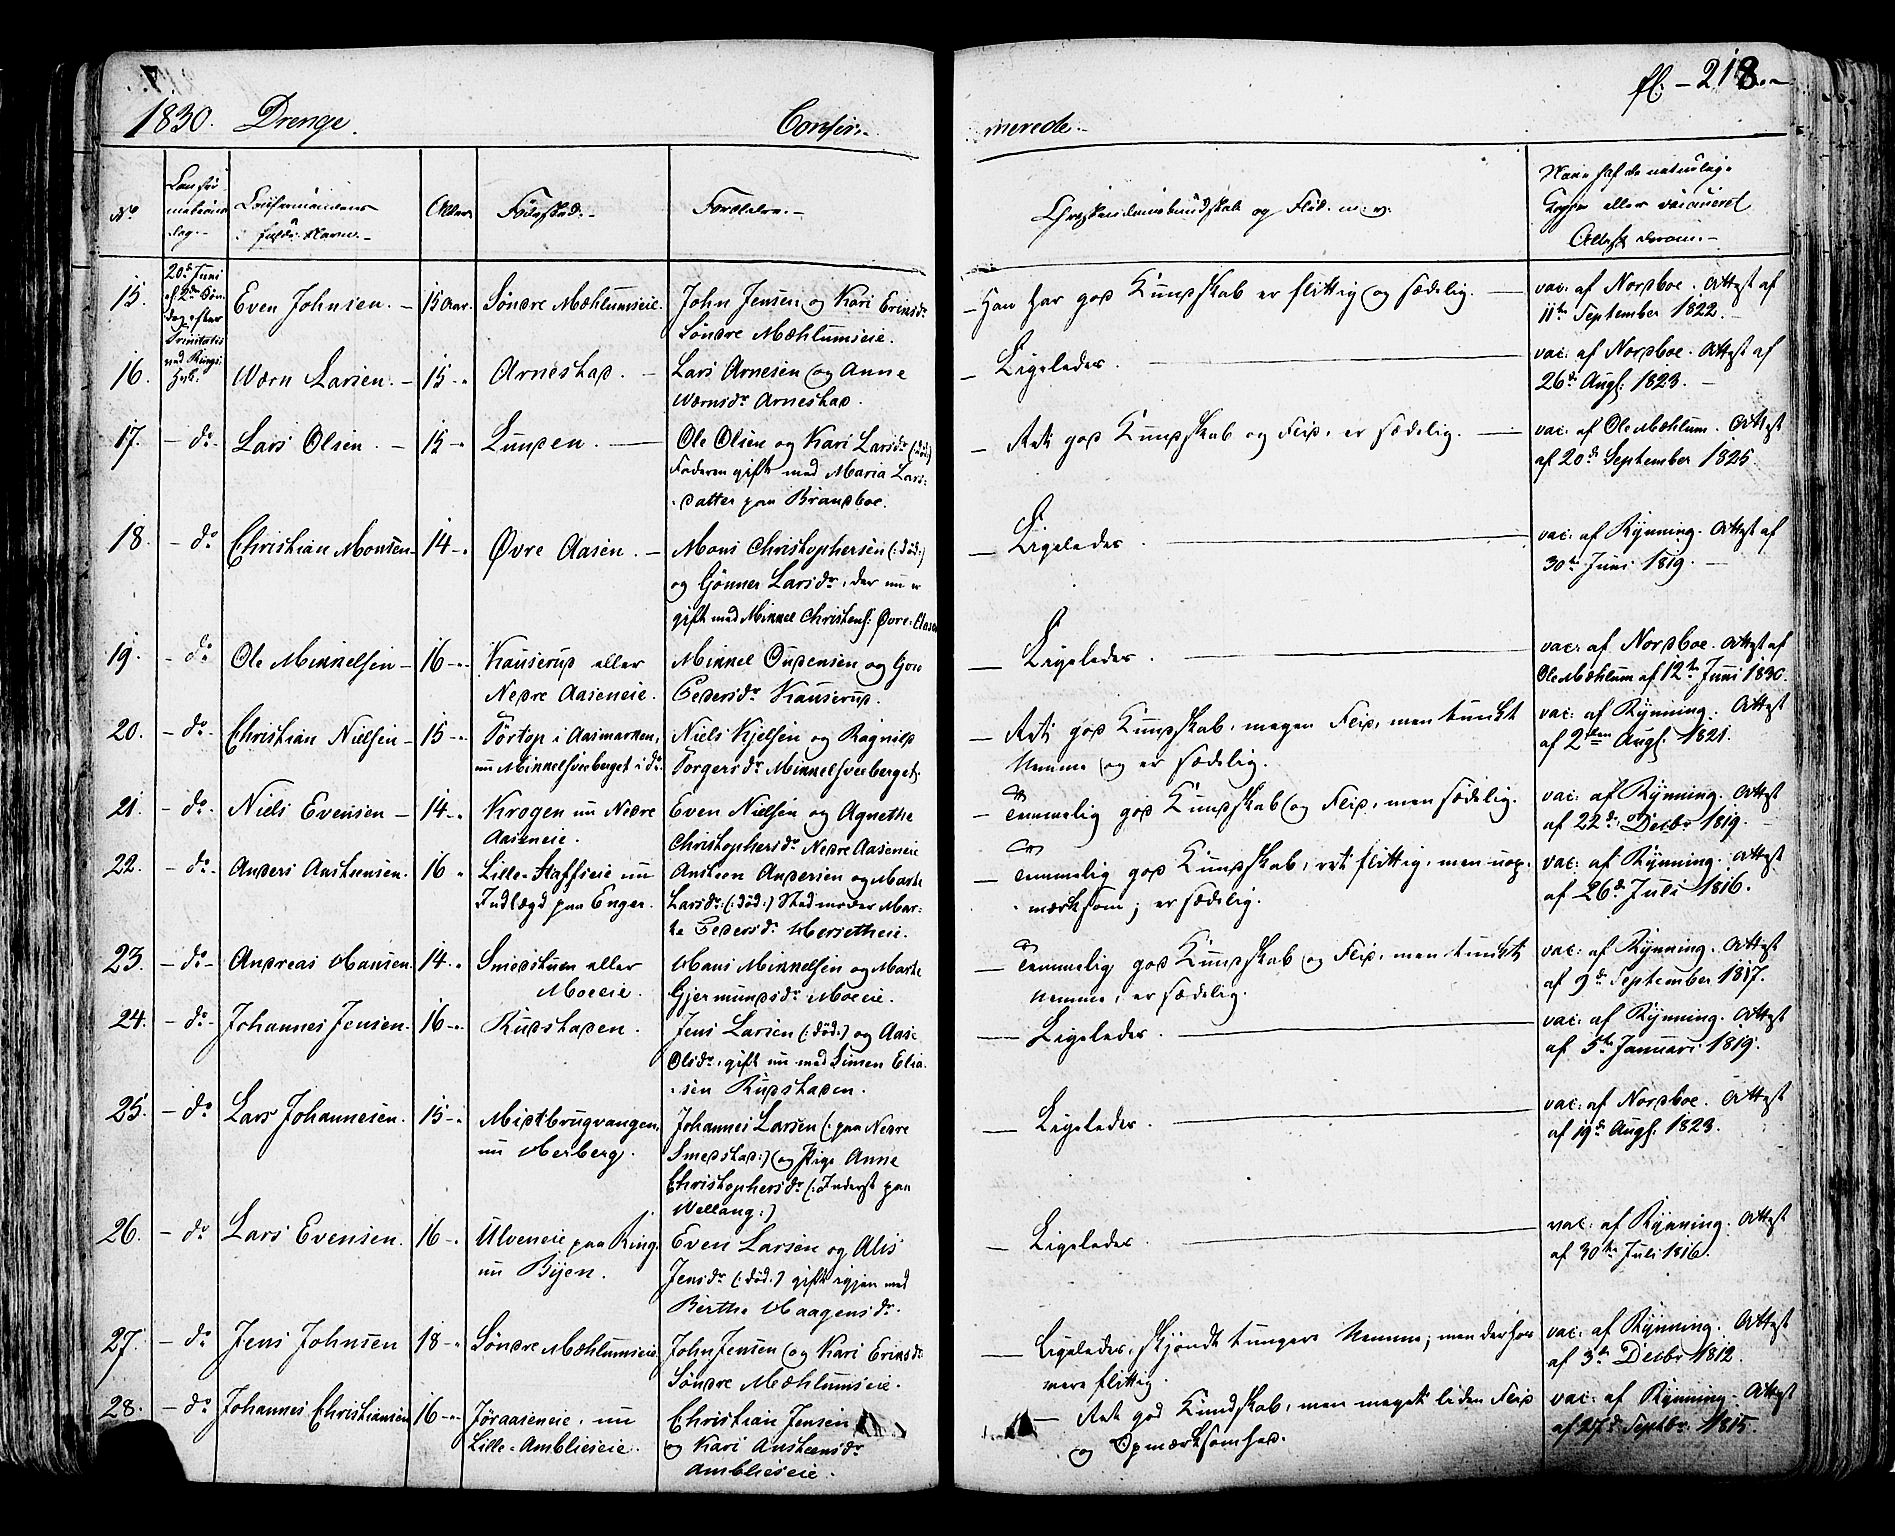 1830. Drenge.
Confir-
merede.
fl. 218
No
Confir-
mations
dag.
Confirmandens
fulde Navn.
Alder
Fødested.
Forældre.
Christendomskundskab og Flid. m: v:
Navn paa de naturlige
Kopper eller vaccineret
Attest derom.
15. 20de Juni
af 2den Søn
dag efter
Trinitatis
ved Rings:
Hvk:
Even Johnsen. 15 Aar. Søndre Mæhlumseie. John Jensen og Kari Ericsdr
Søndre Mæhlumseie.
Han har god Kundskab er flittig og sædelig. vac: af Nordboe. Attest af
11te September 1822.
16. Wærn Larsen. 15 Arnestad. Lars Arnesen og Anne
Wærnsdr Arnestad.
Ligeledes. vac: af Nordboe. Attest af
26de Augs: 1823.
17. do Lars Olsen. 15 Lunden. Ole Olsen og Kari Larsdr (:død:)
Faderen gift med Maria Lars:
datter paa Brandboe.
Reti god Kundskab og Flid, er sædelig. vac: af Ole Mæhlum. Attest
af 20de September 1825.
18. do Christian Monsen 14 Øvre Aasen. Mons Christophersen (:død:)
og Gønner Larsdr, der nu er
gift med Mikkel Christens: Øvre-Aasen
Ligeledes. vac: af Rynning. Attest af
30te Juni 1819.
19. do Ole Mikkelsen 16 Kauserud eller
Nedre Aaseneie.
Mikkel Gudensen og Gou
Pedersdr Kauserud.
Ligeledes. vac: af Nordboe. Attest af
Ole Mæhlum af 12te Juni 1830.
20. do Christian Nielsen 15 Tortop i Aasmarken,
nu Mikkelsveberget i do
Niels Kjelsen og Ragnild
Torgersdr Mikkelsveberget.
Reti god Kundskab, megen Flid, men tungt
Nemme og er sædelig.
vac: af Rynning. Attest
af 2den Augs: 1821.
21. do Niels Evensen 14 Krogen nu Nedre
Aaseneie.
Even Nielsen og Agnethe
Christophersdr Nedre Aaseneie
Temmelig god Kundskab og Flid, men sædelig.
vac: af Rynning. Attest
af 22de Decbr 1819.
22. do Anders Austensen. 16 Lille-Staffseie nu
Indlægd paa Enger.
Austen Andersen og Marthe
Larsdr (:død:) Stedmoder Mar-
the Pedersdr
Temmelig god Kundskab, reti flittig, men uop-
mærksom; er sædelig.
vac: af Rynning. Attest
af 26de Juli 1816.
23. do Andreas Hansen. 14 Smedstuen eller
Moeeie.
Hans Mikkelsen og Marthe
Gjermundsdr Moeeie.
Temmelig god Kundskab og Flid, men tungt
Nemme; er sædelig.
vac: af Rynning. Attest
af 9de September 1817.
24. do Johannes Jensen. 16 Rudstaden. Jens Larsen (:død:) og Aase
Olsdr, gift nu med Simen Elia-
sen Rudstaden.
Ligeledes. vac: af Rynning. Attest
af 5te Januari 1819.
25. do Lars Johannesen. 15 Mistbrugvangen,
nu Herberg.
Johannes Larsen (:paa Nedre
Smedstad:) og Pige Anne
Christophersdr (:Inderst paa
Wellang:)
Ligeledes. vac: af Nordboe. Attest
af 19de Augs: 1823.
26. do Lars Evensen. 16 Ulveneie paa Ring.
nu Byen.
Even Larsen og Alis
Jensdr (:død:) gift igjen med
Berthe Haagensdr.
Ligeledes. vac: af Rynning. Attest
af 30te Juli 1816.
27. do Jens Johnsen 18 Søndre Mæhlumseie John Jensen og Kari Ericsdr
Søndre Mæhlumseie.
Ligeledes, skjøndt tungere Nemme; men derfor
mere flittig.
vac: af Rynning. Attest
af 3de Decbr 1812.
28. do Johannes Christiansen 16 Jøraaseneie, nu
Lille-Amblieseie.
Christian Jensen
og Kari Austensdr
Amblieseie.
Reti god Kundskab, men meget liden Flid
og Opmærksomhed.
vac: af Rynning. Attest
af 27de Septbr 1815.